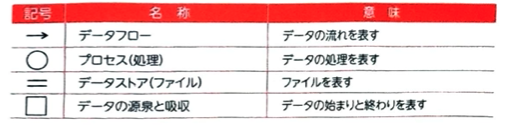 記号 名称 意味
→ データフロー データの流れを表す
○ プロセス(処理) データの処理を表す
＝ データストア(ファイル) ファイルを表す
□ データの源泉と吸収 データの始まりと終わりを表す